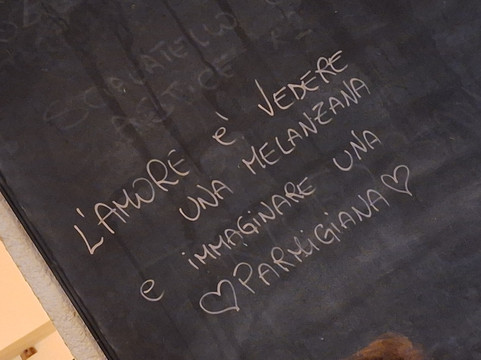 L'AMORE è VEDERE
UNA MELANZANA
e IMMAGINARE UNA
♡PARMIGIANA♡